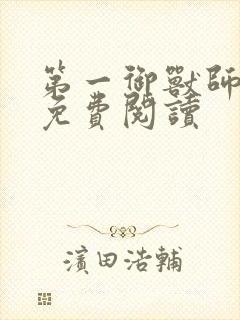 第一御獸師
免費閱讀
濱田浩輔